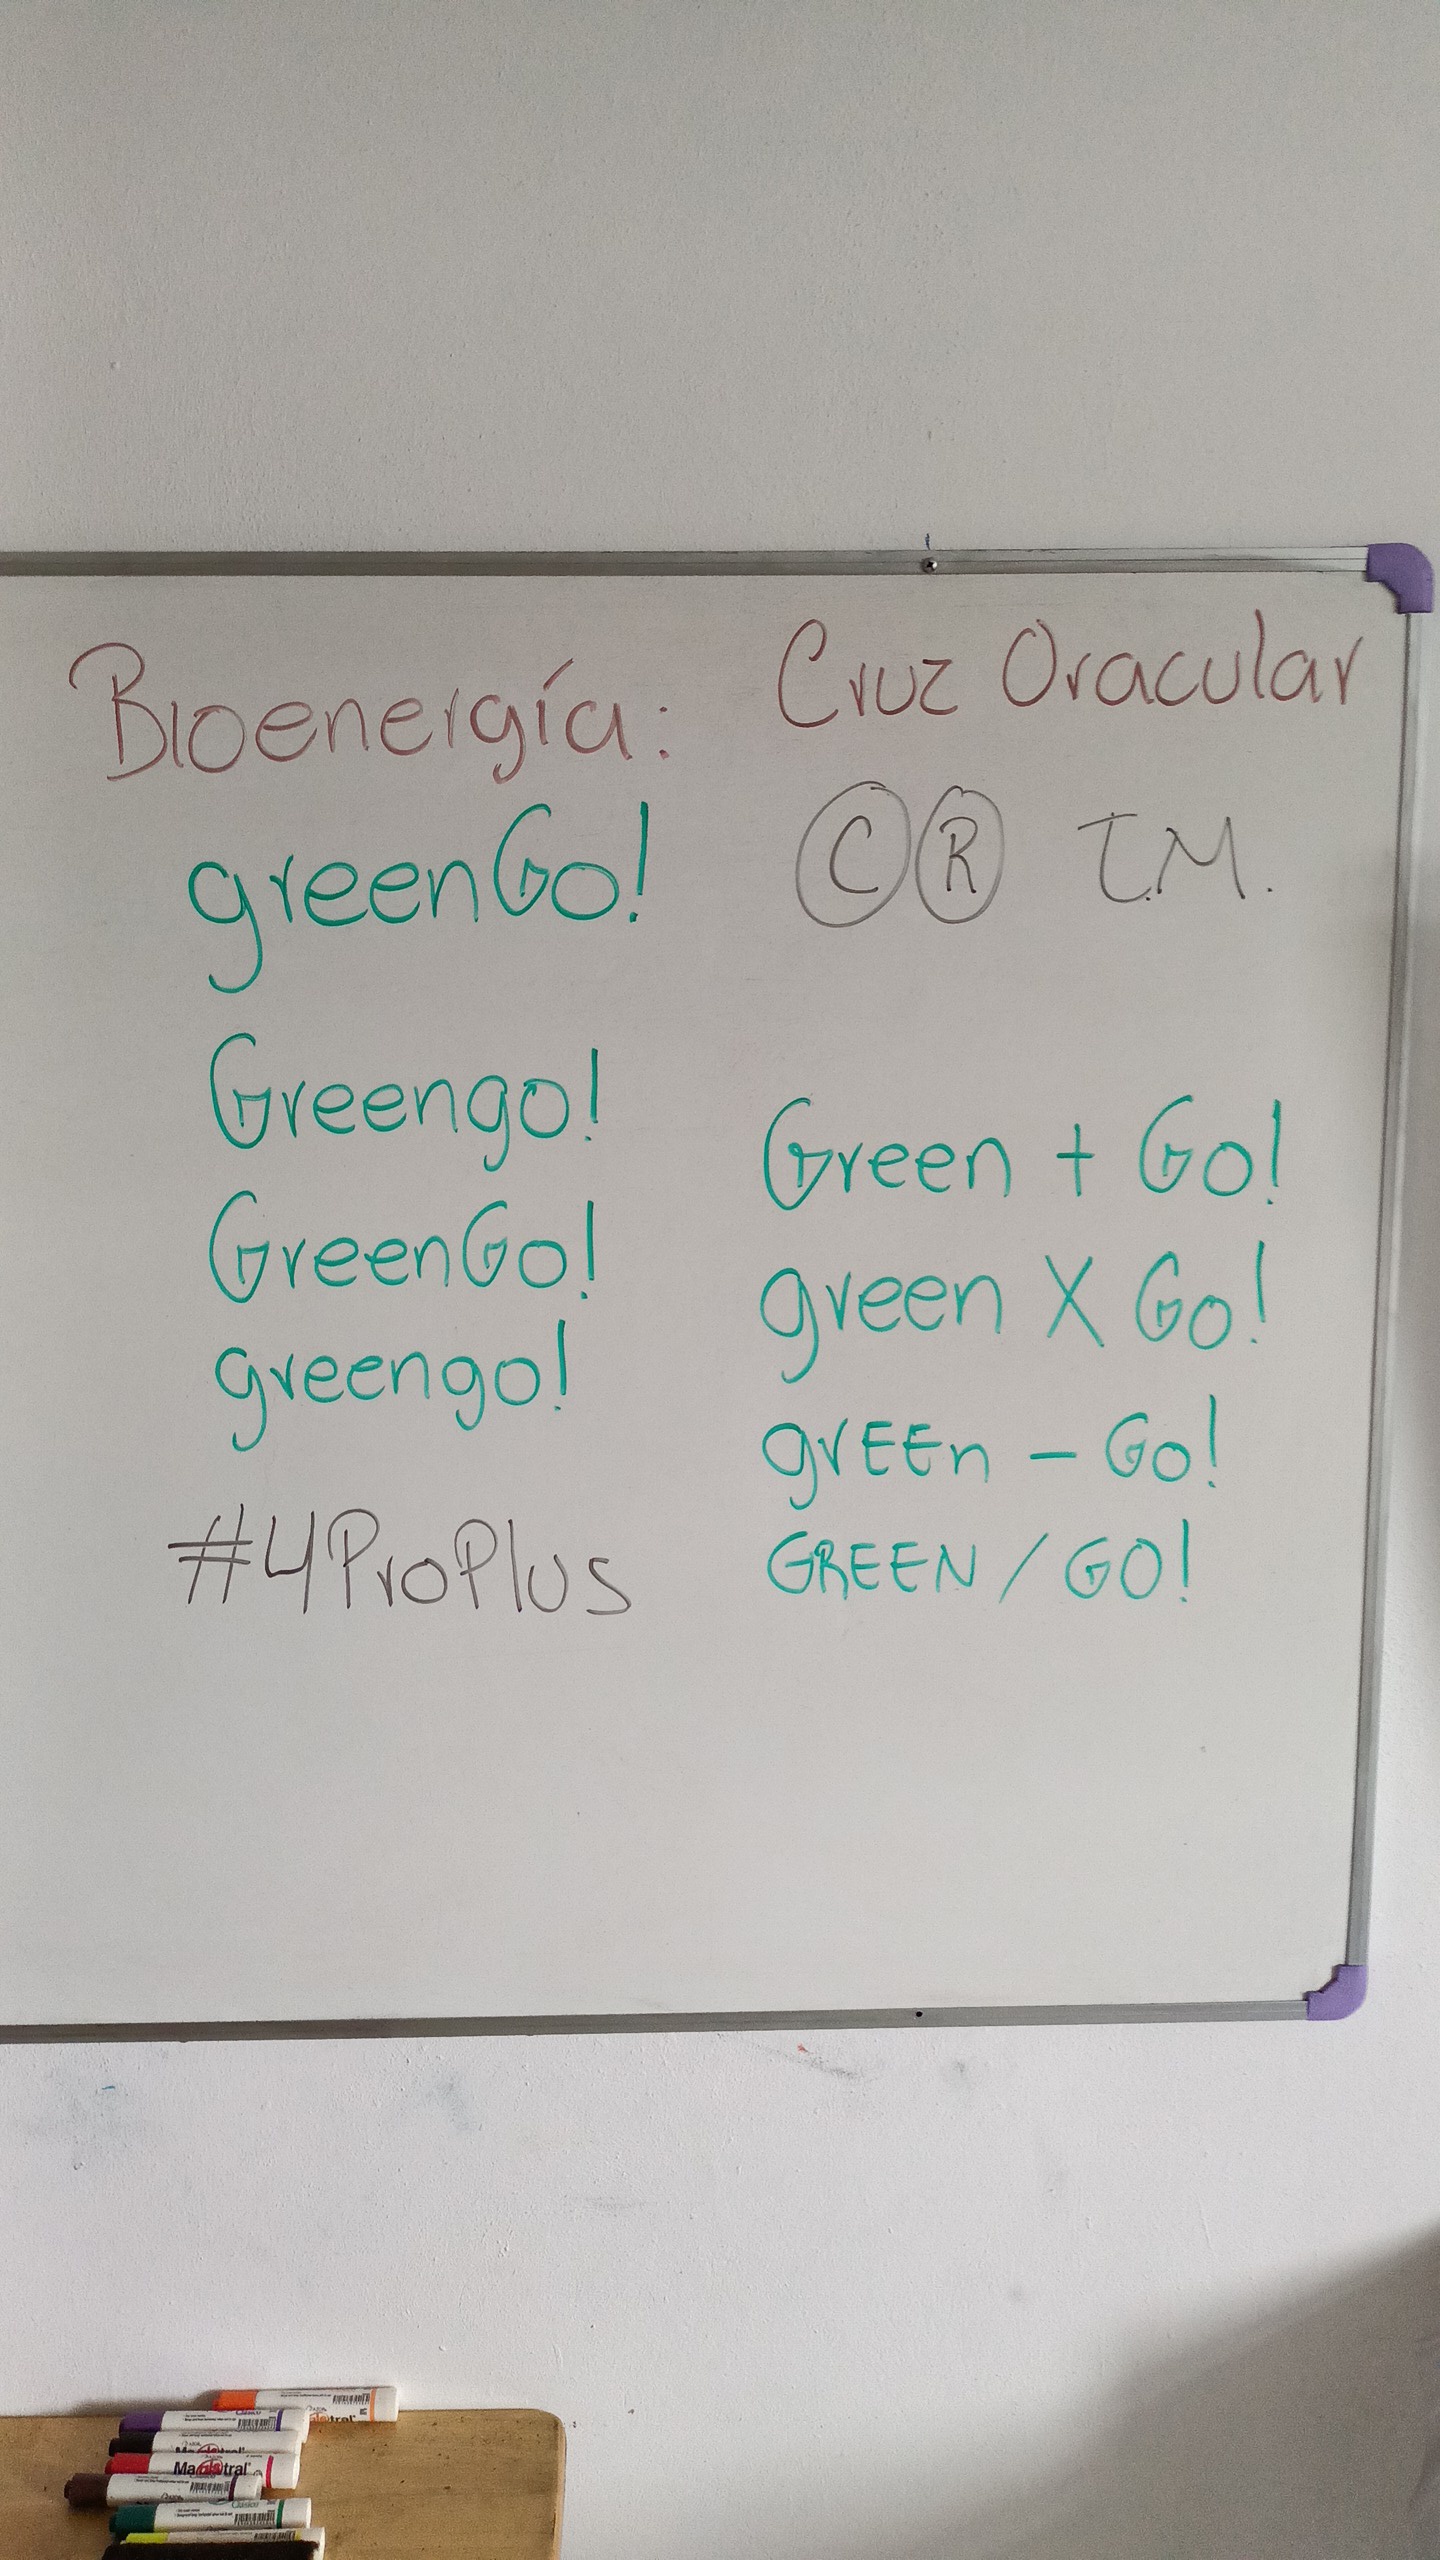 Bioenergía:
greenGo!
Greengo!
GreenGo!
greengo!
#4ProPlus
Cruz Oracular
Ⓒ Ⓡ T.M.
Green + Go!
green X Go!
grEEn - Go!
GREEN / GO!
Clasico
Magistral
Clasico